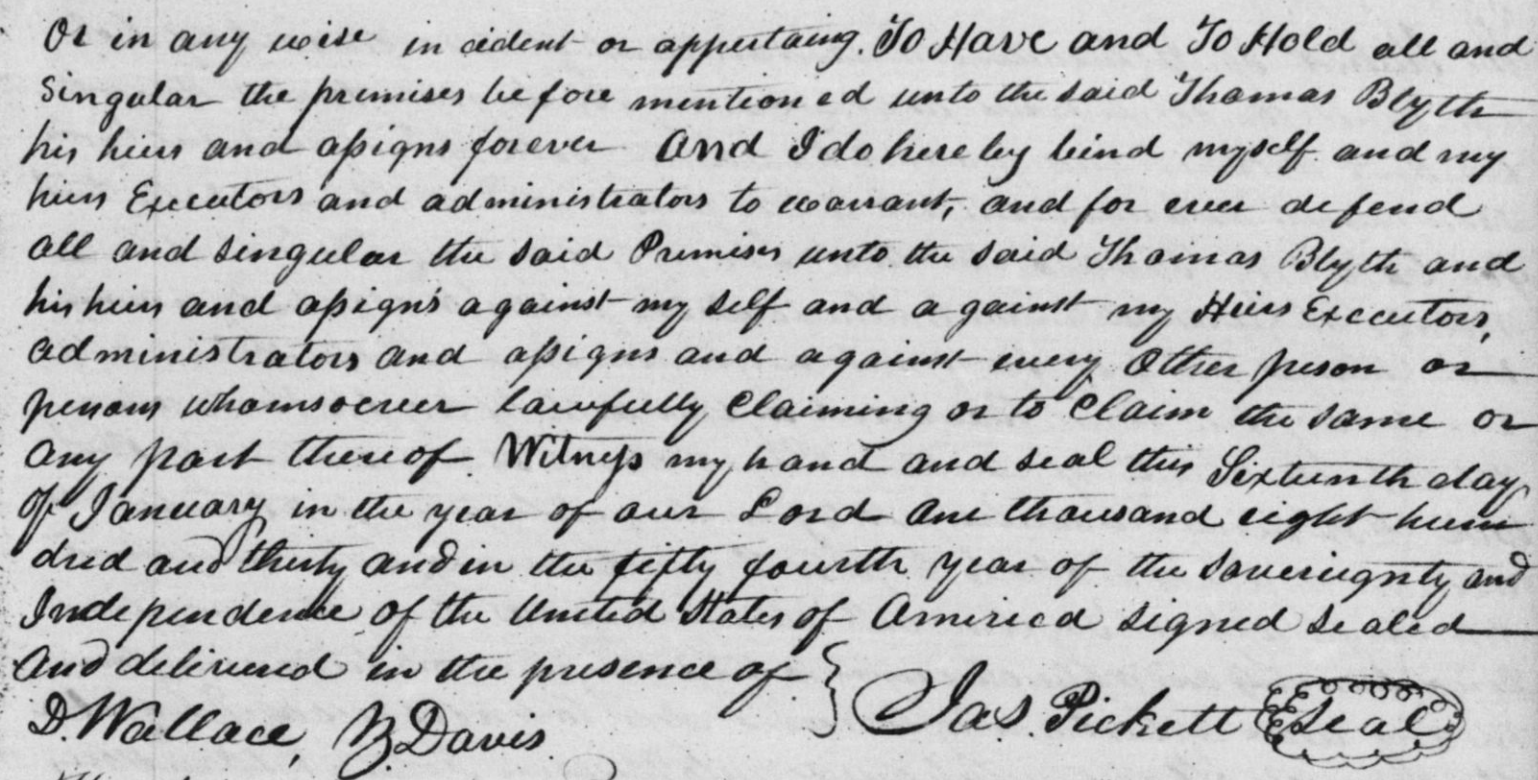 Or in any wise in cident or appertaing. To Have and To Hold all and
Singular the premises before mentioned unto the said Thomas Blyth
his heirs and assigns forever And I do hereby bind myself and my
heirs Executors and administrators to warrant, and for ever defend
all and singular the said Premises unto the said Thomas Blyth and
his heirs and assigns against my self and against my Heirs Executors,
administrators and assigns and against every Other person or
persons whomsoever lawfully Claiming or to Claim the same or
any part thereof Witness my hand and seal this Sixteenth day
Of January in the year of our Lord One thousand eight hun
dred and thirty and in the fifty fourth year of the soveriegnty and
Independence of the United States of America signed sealed
And delivered in the presence of
D. Wallace, Z Davis Jas. Pickett Seal